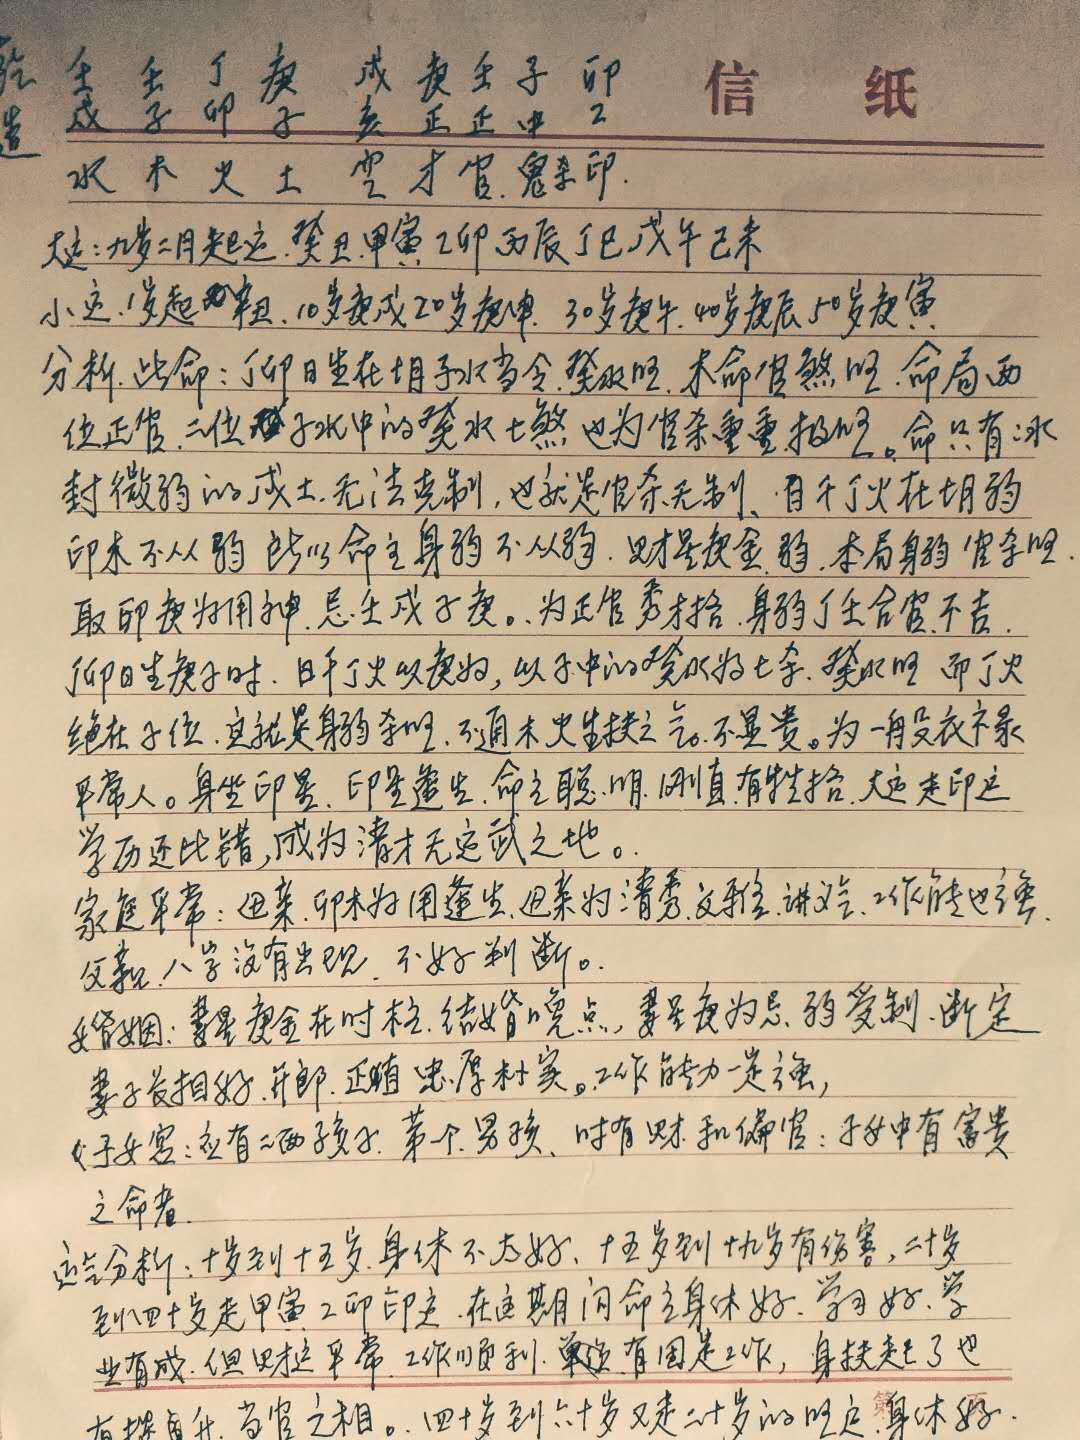 乾造 壬 壬 丁 庚 戌 庚 壬 子 卯 信纸
戌 子 卯 子 亥 正 正 中 乙
水 木 火 土 空 才 官 鬼杀 印.
大运:九岁二月起运.癸丑.甲寅 乙卯 丙辰 丁巳 戊午 己未
小运.1岁起辛丑.10岁庚戌20岁庚申.30岁庚午.40岁庚辰50岁庚寅
分析.此命:丁卯日生在十一月子水当令,癸水旺.本命官煞旺.命局两
位正官.二位子水中的癸水七煞也为官杀重重极旺。命只有冰
封微弱的戌土.无法克制,也就是官杀无制、日干丁火在十一月弱
印木不从弱 所以命主身弱不从弱.财星庚金.弱.本局身弱官杀旺.
取卯庚为用神.忌壬戌子庚。为正官秀才格.身弱丁壬合官.不吉.
丁卯日生庚子时.日干丁火以庚为,以子中的癸水为七杀.癸水旺 而丁火
绝在子位.这就是身弱杀旺.不通木火生扶之气。不显贵。为一般衣禄
平常人。身坐印星.印星逢生.命主聪.明.刚直.有牲格.大运走印运
学历还比错,成为清才无运武之地。
家庭平常:母亲.卯木为用逢生.母亲为清秀.文雅.讲义气.工作能也强.
父亲.八字没有出现.不好判断。
婚姻:妻星庚金在时柱.结婚晚点,妻星庚为忌.弱受制.断定
妻子长相好.开郎.正直忠厚朴实。工作能力一定强,
子女宫:应有二两孩子.第一个男孩、时有财和偏官:子女中有富贵
之命者.
运气分析:十岁到十五岁.身体不太好、十五岁到十九岁有伤害,二十岁
到四十岁走甲寅乙卯印运.在这期间命主身体好.学习好.学
业有成.但财运平常.工作顺利.单位有固定工作,身扶起了也
有提升.当官之相。.四十岁到六十岁又走二十岁的旺运.身体好.
第 页